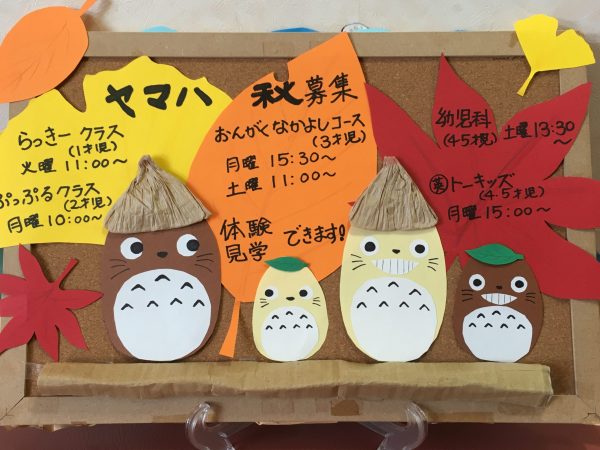 ヤマハ
らっきークラス
(1才児)
火曜 11:00～
ぷっぷるクラス
(2才児)
月曜 10:00～
秋募集
おんがくなかよしコース
(3才児)
月曜 15:30～
土曜 11:00～
体験
見学 できます!
幼児科
(4・5才児) 土曜 13:30～
トーキッズ
(4・5才児)
月曜 15:00～